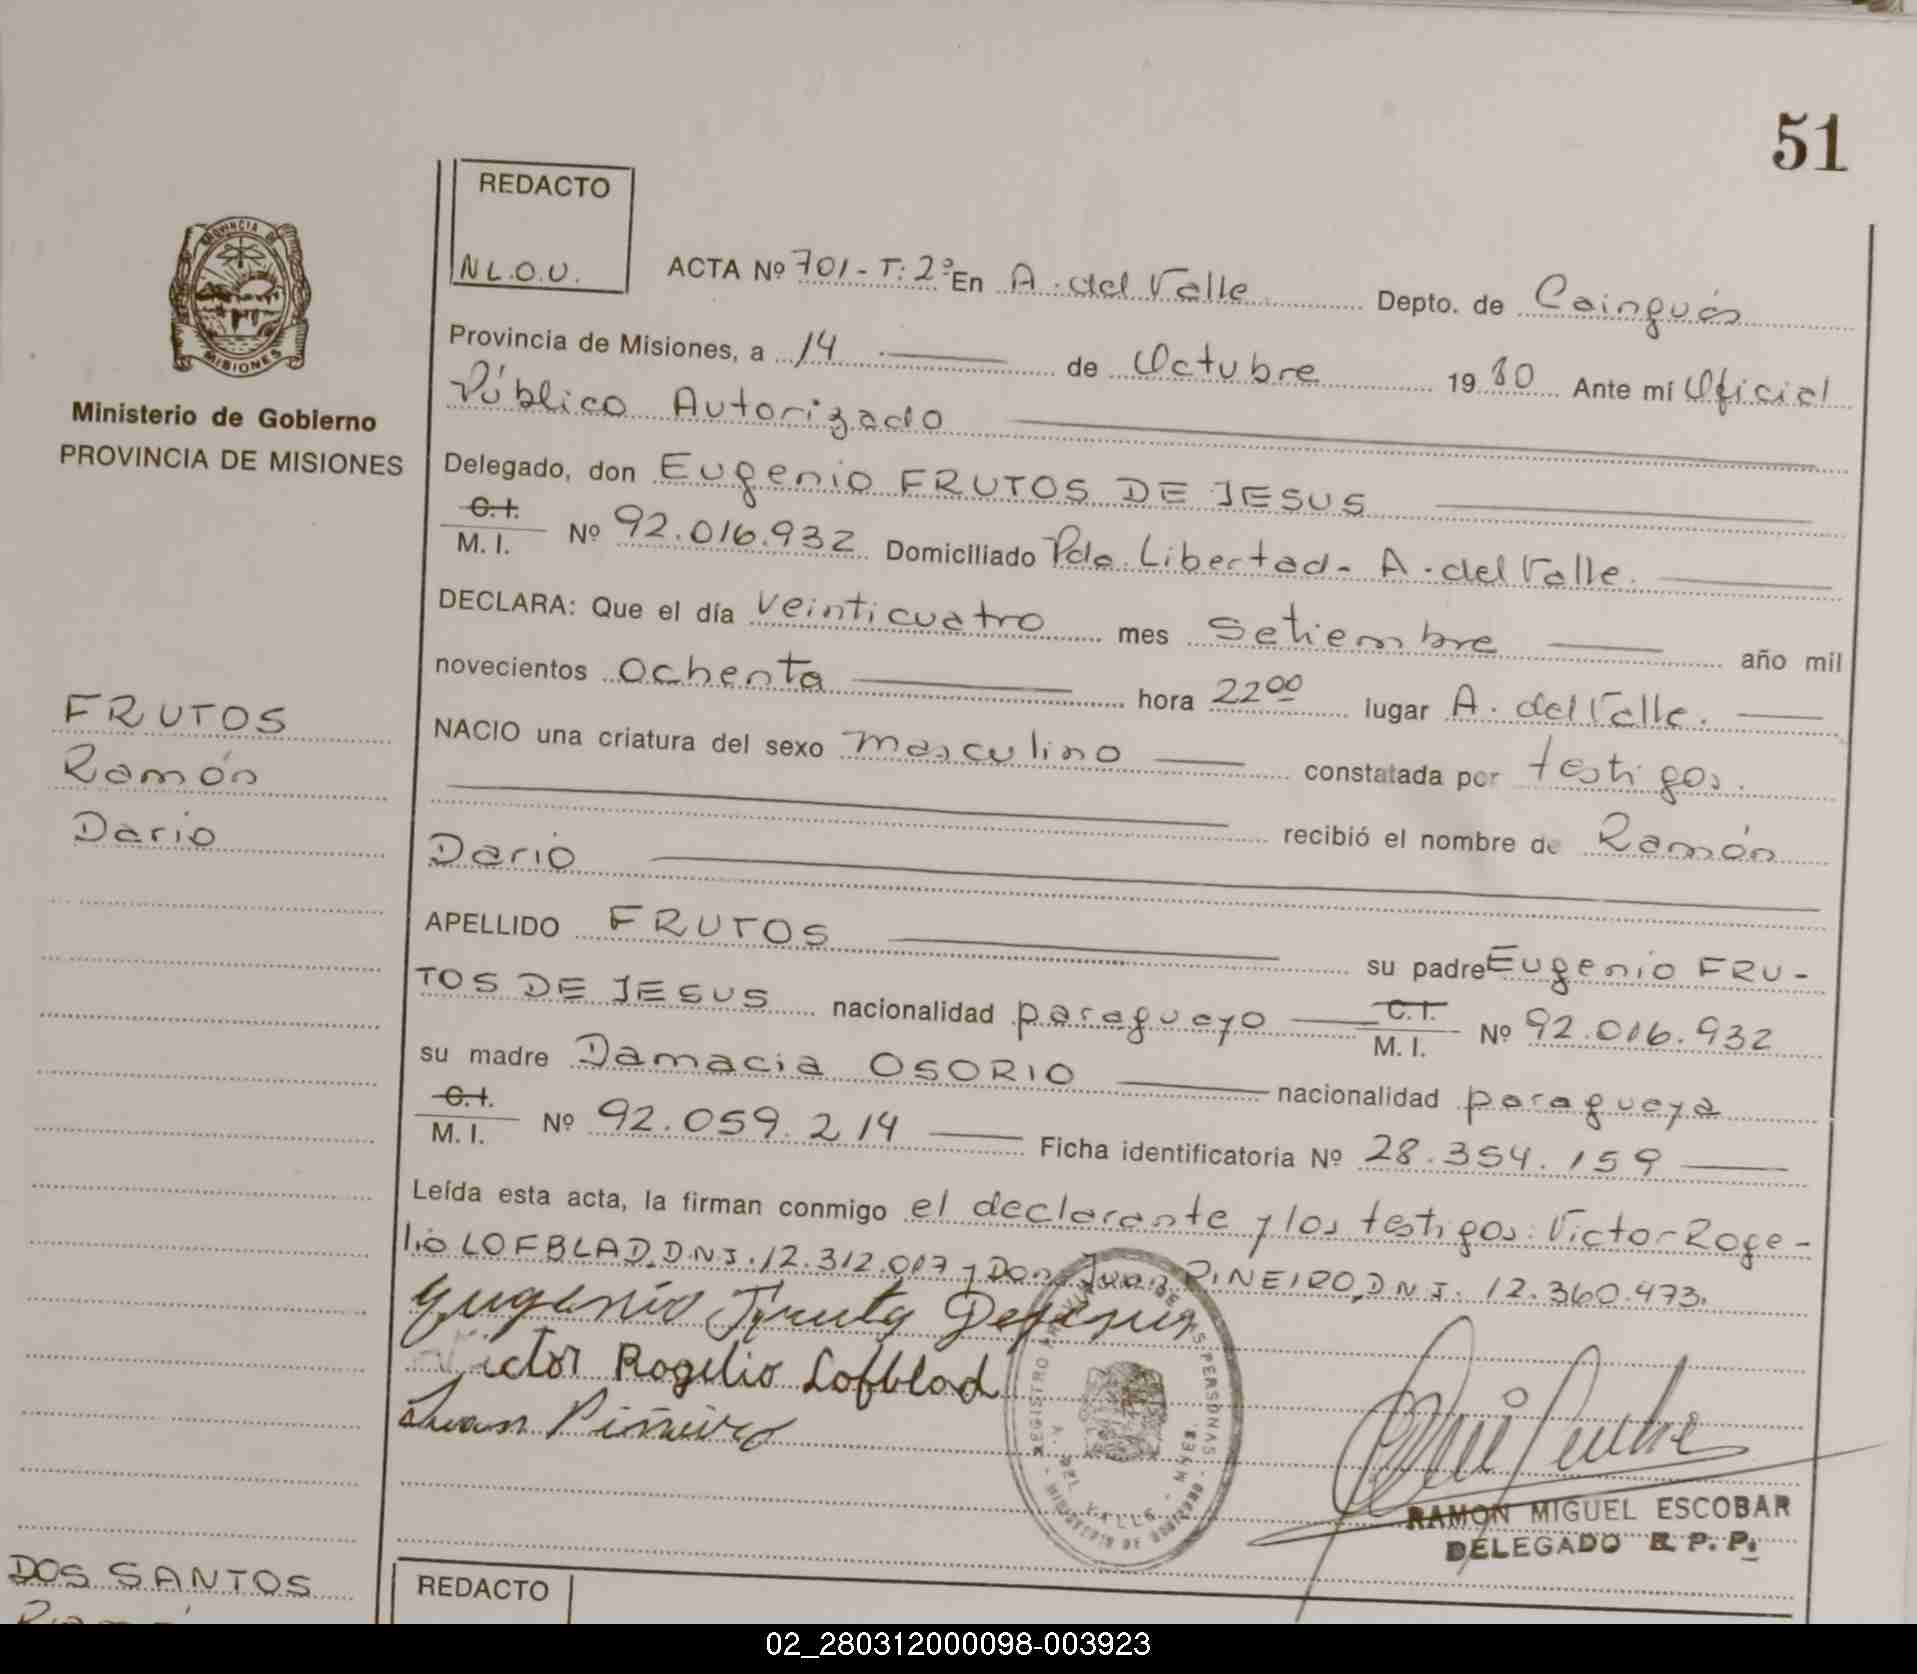 51
REDACTO
N L.O.U.
PROVINCIA DE
MISIONES
Ministerio de Gobierno
PROVINCIA DE MISIONES
ACTA Nº 701 - T: 2º En A. del Valle Depto. de Cainguás
Provincia de Misiones, a 14 de Octubre 1980 Ante mí Oficial
Público Autorizado
Delegado, don Eugenio FRUTOS DE JESUS
C.I. M.I. Nº 92.016.932 Domiciliado Pdo. Libertad - A. del Valle.
DECLARA: Que el día veinticuatro mes setiembre año mil
novecientos ochenta hora 22 00 lugar A. del Valle.
NACIO una criatura del sexo masculino constatada por testigos.
recibió el nombre de Ramón
Darío
APELLIDO FRUTOS su padre Eugenio FRU-
TOS DE JESUS nacionalidad paraguayo C.I. M.I. Nº 92.016.932
su madre Damacia OSORIO nacionalidad paraguaya
C.I. M.I. Nº 92.059.214 Ficha identificatoria Nº 28.354.159
Leída esta acta, la firman conmigo el declarante y los testigos: Victor Roge-
lio LOFBLAD, D.N.I. 12.312.007 y Don Juan PINEIRO, D.N.I. 12.360.473.
Victor Rogelio Lofblad
Juan Piñeiro
A. DEL VALLE - MNES.
RAMON MIGUEL ESCOBAR
DELEGADO R. P. P.
FRUTOS
Ramón
Darío
DOS SANTOS
REDACTO
02_280312000098-003923